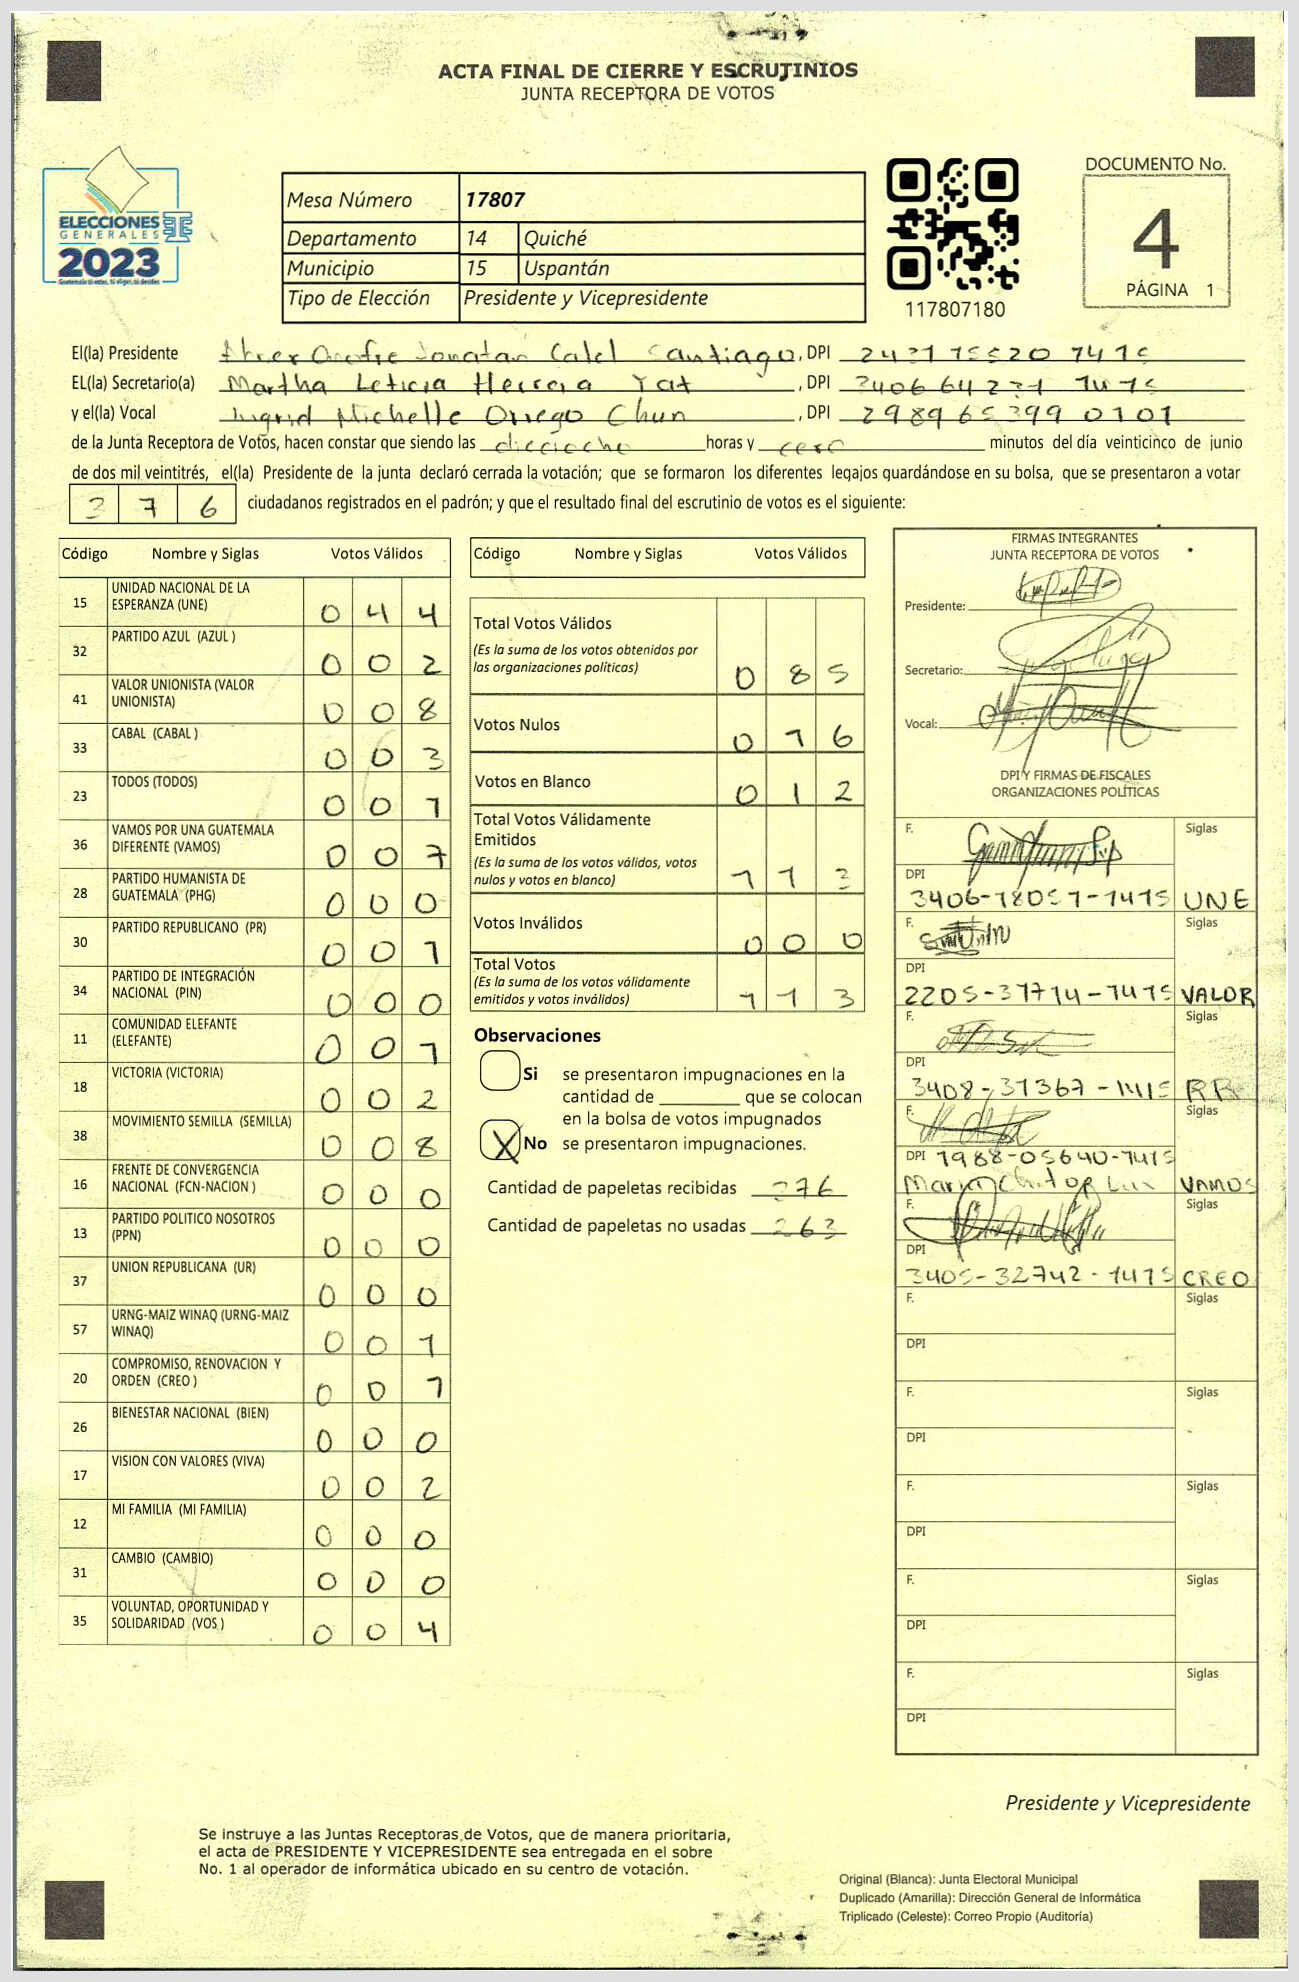 ACTA FINAL DE CIERRE Y ESCRUTINIOS
JUNTA RECEPTORA DE VOTOS
ELECCIONES
GENERALES
2023
Mesa Número 17807
Departamento 14 Quiché
Municipio 15 Uspantán
Tipo de Elección Presidente y Vicepresidente
117807180
DOCUMENTO No.
4
PÁGINA 1
El(la) Presidente Jonatan Calel Santiago, DPI
EL(la) Secretario(a) Martha Leticia Herrera Yat, DPI
y el(la) Vocal Ingrid Michelle Orrego Chun, DPI 2989 65399 0101
de la Junta Receptora de Votos, hacen constar que siendo las dieciocho horas y cero minutos del día veinticinco de junio
de dos mil veintitrés, el(la) Presidente de la junta declaró cerrada la votación; que se formaron los diferentes legajos guardándose en su bolsa, que se presentaron a votar
376 ciudadanos registrados en el padrón; y que el resultado final del escrutinio de votos es el siguiente:
Código Nombre y Siglas Votos Válidos
15 UNIDAD NACIONAL DE LA ESPERANZA (UNE) 0 4 4
32 PARTIDO AZUL (AZUL ) 0 0 2
41 VALOR UNIONISTA (VALOR UNIONISTA) 0 0 8
33 CABAL (CABAL ) 0 0 3
23 TODOS (TODOS) 0 0 1
36 VAMOS POR UNA GUATEMALA DIFERENTE (VAMOS) 0 0 7
28 PARTIDO HUMANISTA DE GUATEMALA (PHG) 0 0 0
30 PARTIDO REPUBLICANO (PR) 0 0 1
34 PARTIDO DE INTEGRACIÓN NACIONAL (PIN) 0 0 0
11 COMUNIDAD ELEFANTE (ELEFANTE) 0 0 1
18 VICTORIA (VICTORIA) 0 0 2
38 MOVIMIENTO SEMILLA (SEMILLA) 0 0 8
16 FRENTE DE CONVERGENCIA NACIONAL (FCN-NACION ) 0 0 0
13 PARTIDO POLITICO NOSOTROS (PPN) 0 0 0
37 UNION REPUBLICANA (UR) 0 0 0
57 URNG-MAIZ WINAQ (URNG-MAIZ WINAQ) 0 0 1
20 COMPROMISO, RENOVACION Y ORDEN (CREO ) 0 0 1
26 BIENESTAR NACIONAL (BIEN) 0 0 0
17 VISION CON VALORES (VIVA) 0 0 2
12 MI FAMILIA (MI FAMILIA) 0 0 0
31 CAMBIO (CAMBIO) 0 0 0
35 VOLUNTAD, OPORTUNIDAD Y SOLIDARIDAD (VOS ) 0 0 4
Código Nombre y Siglas Votos Válidos
Total Votos Válidos 0 8 5
(Es la suma de los votos obtenidos por
las organizaciones políticas)
Votos Nulos 0 1 6
Votos en Blanco 0 1 2
Total Votos Válidamente
Emitidos 1 1 3
(Es la suma de los votos válidos, votos
nulos y votos en blanco)
Votos Inválidos 0 0 0
Total Votos 1 1 3
(Es la suma de los votos válidamente
emitidos y votos inválidos)
Observaciones
Si se presentaron impugnaciones en la
cantidad de ________ que se colocan
en la bolsa de votos impugnados
X No se presentaron impugnaciones.
Cantidad de papeletas recibidas 376
Cantidad de papeletas no usadas 263
FIRMAS INTEGRANTES
JUNTA RECEPTORA DE VOTOS
Presidente:
Secretario:
Vocal:
DPI Y FIRMAS DE FISCALES
ORGANIZACIONES POLÍTICAS
F. Siglas
DPI
3406-18057-1415 UNE
F. Siglas
DPI
2205-31714-1415 VALOR
F. Siglas
DPI
3408-31367-1415
F. Siglas
DPI 1988-05640-1415
VAMOS
F. Siglas
DPI
3405-32742-1415 CREO
F. Siglas
DPI
F. Siglas
DPI
F. Siglas
DPI
F. Siglas
DPI
F. Siglas
DPI
Presidente y Vicepresidente
Se instruye a las Juntas Receptoras de Votos, que de manera prioritaria,
el acta de PRESIDENTE Y VICEPRESIDENTE sea entregada en el sobre
No. 1 al operador de informática ubicado en su centro de votación.
Original (Blanca): Junta Electoral Municipal
Duplicado (Amarilla): Dirección General de Informática
Triplicado (Celeste): Correo Propio (Auditoría)